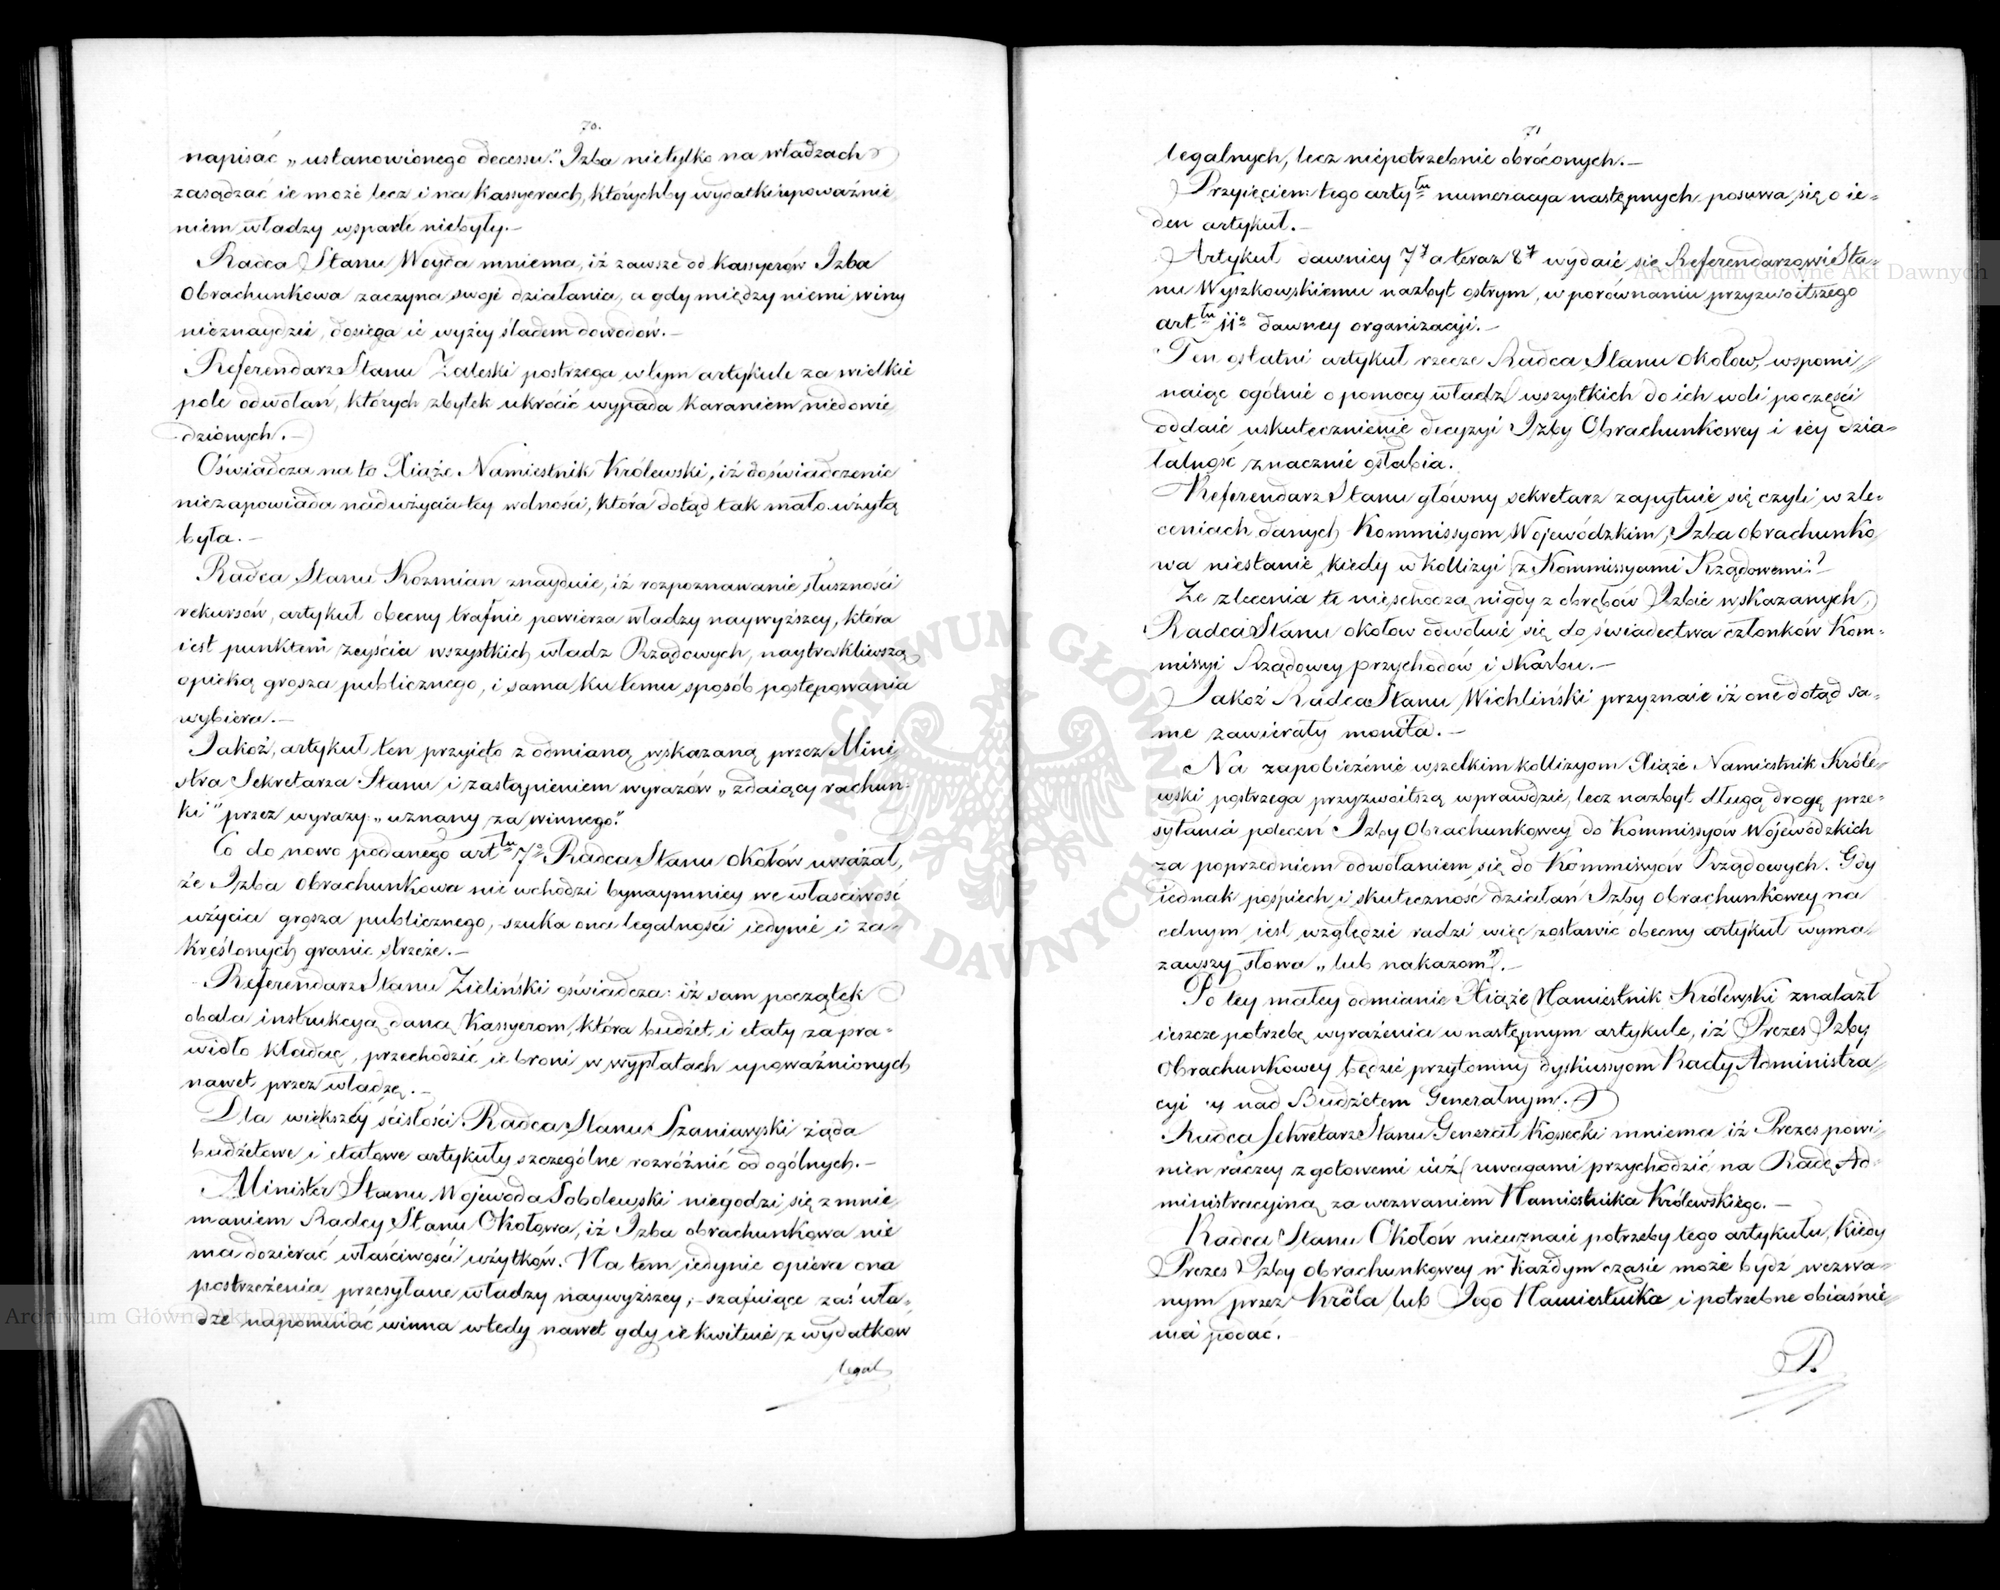 70.
napisać „ustanowionego decessu." Izba nietylko na władzach
zasądzać ie może lecz i na Kassyerach, którychby wydatki upoważnie
niem władzy wsparte niebyły.—
Radca Stanu Woyda mniema, iż zawsze od Kassyerów Izba
Obrachunkowa zaczyna swoje działania, a gdy między niemi winy
nieznaydzie, dosięga ie wyżey śladem dowodów.—
Referendarz Stanu Zaleski postrzega w tym artykule za wielkie
pole odwołań, których zbytek ukrócić wypada karaniem niedowie
dzionych.—
Oświadcza na to Xiąże Namiestnik Królewski, iż doświadczenie
niezapowiada nadużycia tey wolności, która dotąd tak mało użytą
była.—
Radca Stanu Kozmian znayduie, iż rozpoznawanie słuszności
rekursów, artykuł obecny trafnie powierza władzy naywyższey, która
iest punktem zeyścia wszystkich władz Rządowych, naytroskliwszą
opieką grosza publicznego, i sama ku temu sposób postępowania
wybiera.—
Jakoż, artykuł ten przyięto z odmianą wskazaną przez Mini
stra Sekretarza Stanu i zastąpieniem wyrazów „zdaiący rachun-
ki" przez wyrazy „uznany za winnego."
Co do nowo podanego art<sup>łu</sup> 7° Radca Stanu Okołów uważał,
że Izba Obrachunkowa nie wchodzi bynaymniey we właściwość
użycia grosza publicznego, szuka ona legalności iedynie i za-
kreślonych granic strzeże.—
Referendarz Stanu Zieliński oświadcza: iż sam początek
obala instrukcya dana Kassyerom, która budżet i etaty za pra-
widło kładąc, przechodzić ie broni w wypłatach upoważnionych
nawet przez władzę.—
Dla większey ścisłości Radca Stanu Szaniawski żąda
budżetowe i etatowe artykuły szczególne rozróżnić od ogólnych.—
Minister Stanu Wojewoda Sobolewski niegodzi się z mnie
maniem Radcy Stanu Okołowa, iż Izba obrachunkowa nie
ma dozierać właściwości użytków. Na tem iedynie opiera ona
postrzeżenia przesyłane władzy naywyższey; szafuiące zaś wła-
dze napominać winna wtedy nawet gdy ie kwituie z wydatków
legal
71
legalnych, lecz niepotrzebnie obróconych.—
Przyięciem tego arty<sup>łu</sup> numeracya następnych posuwa się o ie-
den artykuł.—
Artykuł dawniey 7<sup>y</sup> a teraz 8<sup>y</sup> wydaie się Referendarzowi Sta-
nu Wyszkowskiemu nazbyt ostrym, w porównaniu przyzwoitszego
art<sup>łu</sup> 11° dawney organizacyi.—
Ten ostatni artykuł rzecze Radca Stanu Okołow, wspomi
naiąc ogólnie o pomocy władz wszystkich do ich woli po części
oddaie uskutecznienie decyzyi Izby Obrachunkowey i iey dzia-
łalność znacznie osłabia.
Referendarz Stanu główny sekretarz zapytuie się czyli w zle-
ceniach danych Kommissyom Wojewódzkim, Izba obrachunko
wa niestanie kiedy w kollizyi z Kommissyami Rządowemi?—
Że zlecenia te nieschodzą nigdy z obrębów Izbie wskazanych,
Radca Stanu Okołow odwołuie się do świadectwa członków Kom-
missyi Rządowey przychodów i Skarbu.—
Jakoż Radca Stanu Wichliński przyznaie iż one dotąd sa-
me zawierały monita.—
Na zapobieżenie wszelkim kollizyom Xiąże Namiestnik Króle-
wski postrzega przyzwoitszą wprawdzie, lecz nazbyt długą drogę prze-
syłania poleceń Izby Obrachunkowey do Kommissyów Wojewódzkich
za poprzedniem odwołaniem się do Kommissyów Rządowych. Gdy
iednak pośpiech i skuteczność działań Izby obrachunkowey na
celnym iest względzie radzi więc zostawić obecny artykuł wyma
zawszy słowa „lub nakazom".—
Po tey małey odmianie Xiąże Namiestnik Królewski znalazł
ieszcze potrzebę wyrażenia w następnym artykule, iż Prezes Izby
Obrachunkowey będzie przytomny dyskussyom Rady Administra
cyi nad Budżetem Generalnym.
Radca Sekretarz Stanu Generał Kossecki mniema iż Prezes powi-
nien raczey z gotowemi iuż uwagami przychodzić na Radę Ad-
ministracyiną za wezwaniem Namiestnika Królewskiego.—
Radca Stanu Okołów nieuznaie potrzeby tego artykułu, kiedy
Prezes Izby obrachunkowey w każdym czasie może bydź wezwa-
nym przez Króla lub Jego Namiestnika i potrzebne obiaśnie-
nia podać.
P.
Archiwum Główne Akt Dawnych
Archiwum Główne Akt Dawnych
ARCHIWUM GŁÓWNE AKT DAWNYCH